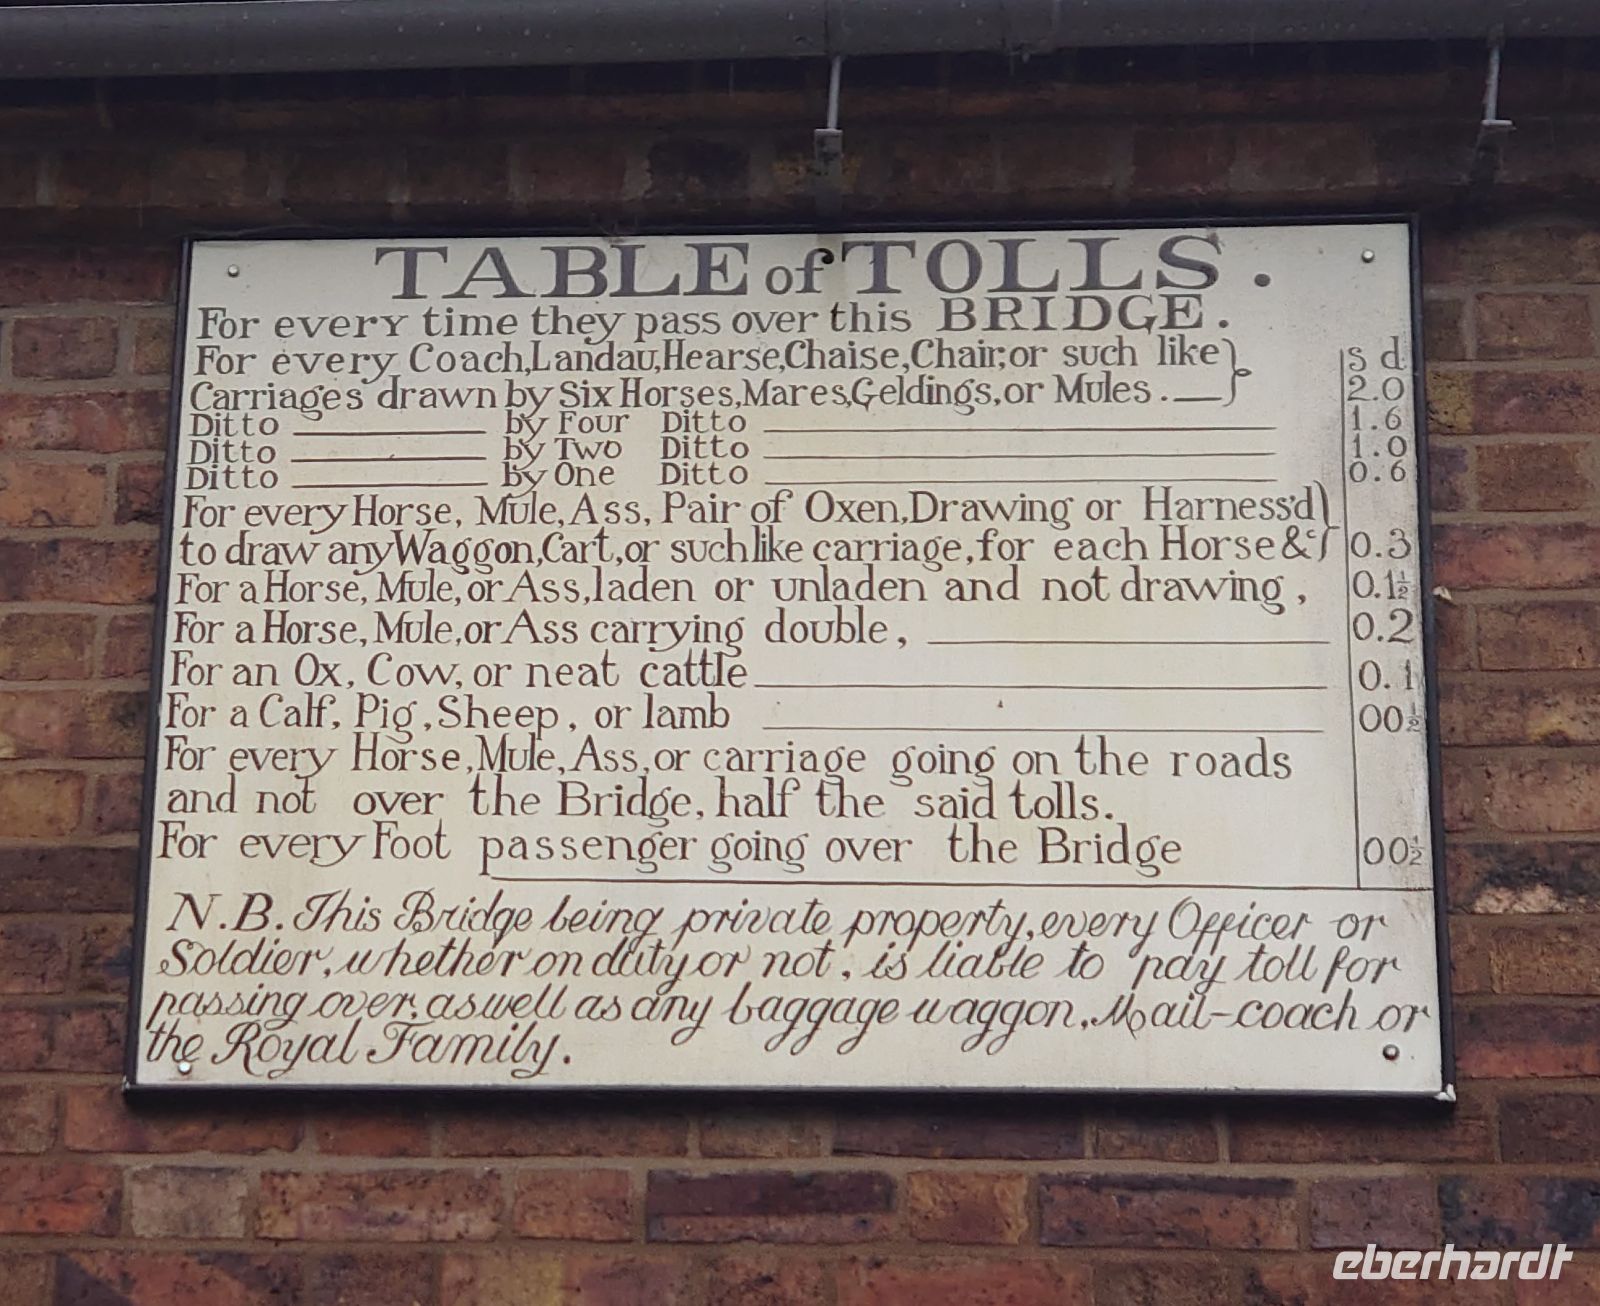 TABLE of TOLLS.
For every time they pass over this BRIDGE.
For every Coach, Landau, Hearse, Chaise, Chair, or such like } s d
Carriages drawn by Six Horses, Mares, Geldings, or Mules. — } 2.0
Ditto ______ by Four Ditto ______ 1.6
Ditto ______ by Two Ditto ______ 1.0
Ditto ______ by One Ditto ______ 0.6
For every Horse, Mule, Ass, Pair of Oxen, Drawing or Harness'd }
to draw any Waggon, Cart, or such like carriage, for each Horse &c } 0.3
For a Horse, Mule, or Ass, laden or unladen and not drawing, 0.1½
For a Horse, Mule, or Ass carrying double, ______ 0.2
For an Ox, Cow, or neat cattle ______ 0.1
For a Calf, Pig, Sheep, or lamb ______ 00½
For every Horse, Mule, Ass, or carriage going on the roads
and not over the Bridge, half the said tolls.
For every Foot passenger going over the Bridge 00½
N.B. This Bridge being private property, every Officer or
Soldier, whether on duty or not, is liable to pay toll for
passing over, as well as any baggage waggon, Mail-coach or
the Royal Family.
eberhardt